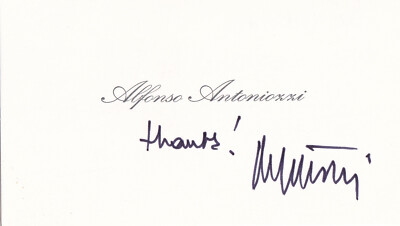 Alfonso Antoniozzi
thanks!